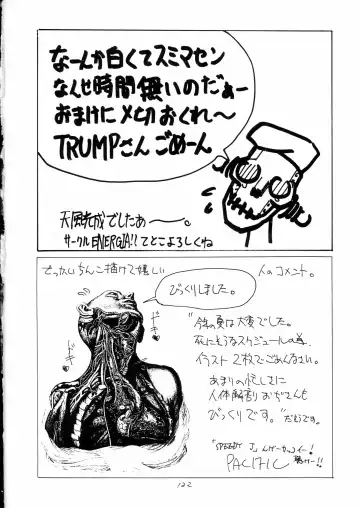 なーんか白くてスミマセン
なんせ時間無いのだぁー
おまけに〆切おくれ〜
TRUMPさんごめーん
天風完成でしたぁ〜。
サークルENERGIA!!てとこよろしくね
でっかいちんこ描けて嬉しい
人のコメント。
びっくりしました。
ドキ
ドキ
"今年の夏は大変でした。
死にそうなスケジュールの為
イラスト2枚でごめんなさい。
あまりの忙しさに
人体解剖おじさんも
びっくりです。"だそうです。
「SPEEDY J」
PACIFIC
122